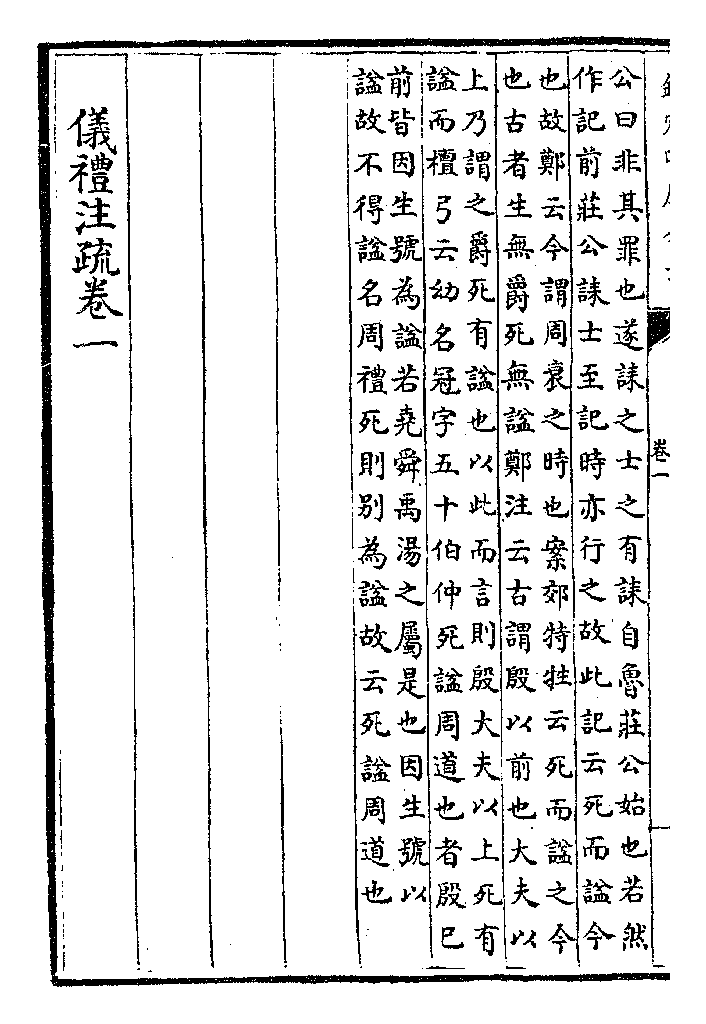 公曰非其罪也遂誄之士之有誄自魯莊公始也若然
作記前莊公誄士至記時亦行之故此記云死而諡今
也故鄭云今謂周衰之時也案郊特牲云死而諡之今
也古者生無爵死無諡鄭注云古謂殷以前也大夫以
上乃謂之爵死有諡也以此而言則殷大夫以上死有
諡而檀弓云幼名冠字五十伯仲死諡周道也者殷已
前皆因生號為諡若堯舜禹湯之屬是也因生號以
諡故不得諡名周禮死則别為諡故云死諡周道也
儀禮注疏卷一
卷一